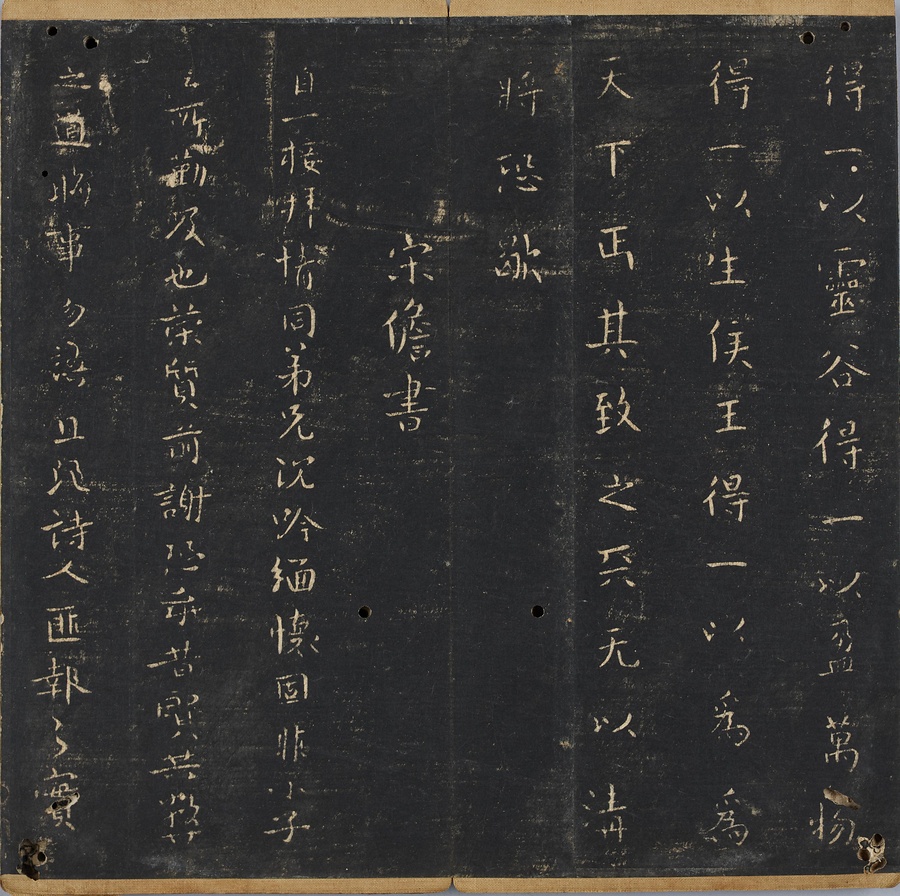 得一以靈谷得一以盈萬物
得一以生侯王得一以為為
天下正其致之天无以清
將恐歇
宋儋書
自一接拜情同弟兄沈吟緬懷固非小子
之所勤及也榮質前謝恐乖昔賢共弊
之道將事勿諼且及詩人匪報之實